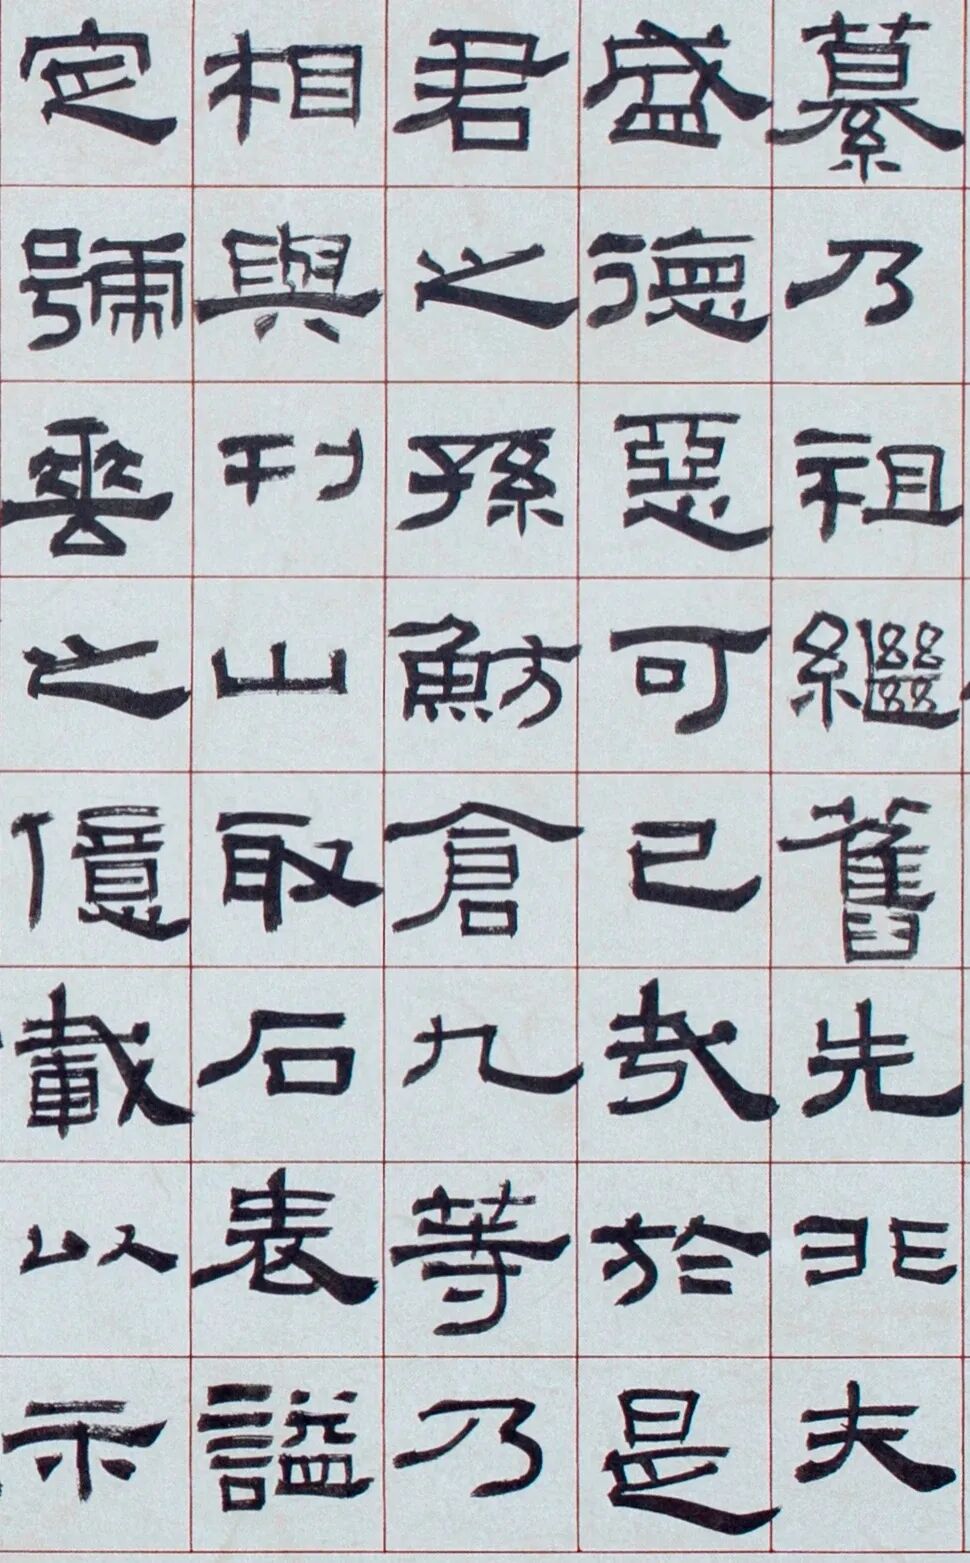 纂乃祖繼舊先非夫
盛德惡可已哉於是
君之孫魴倉九等乃
相與刊山取石表謚
定號垂之億載以示